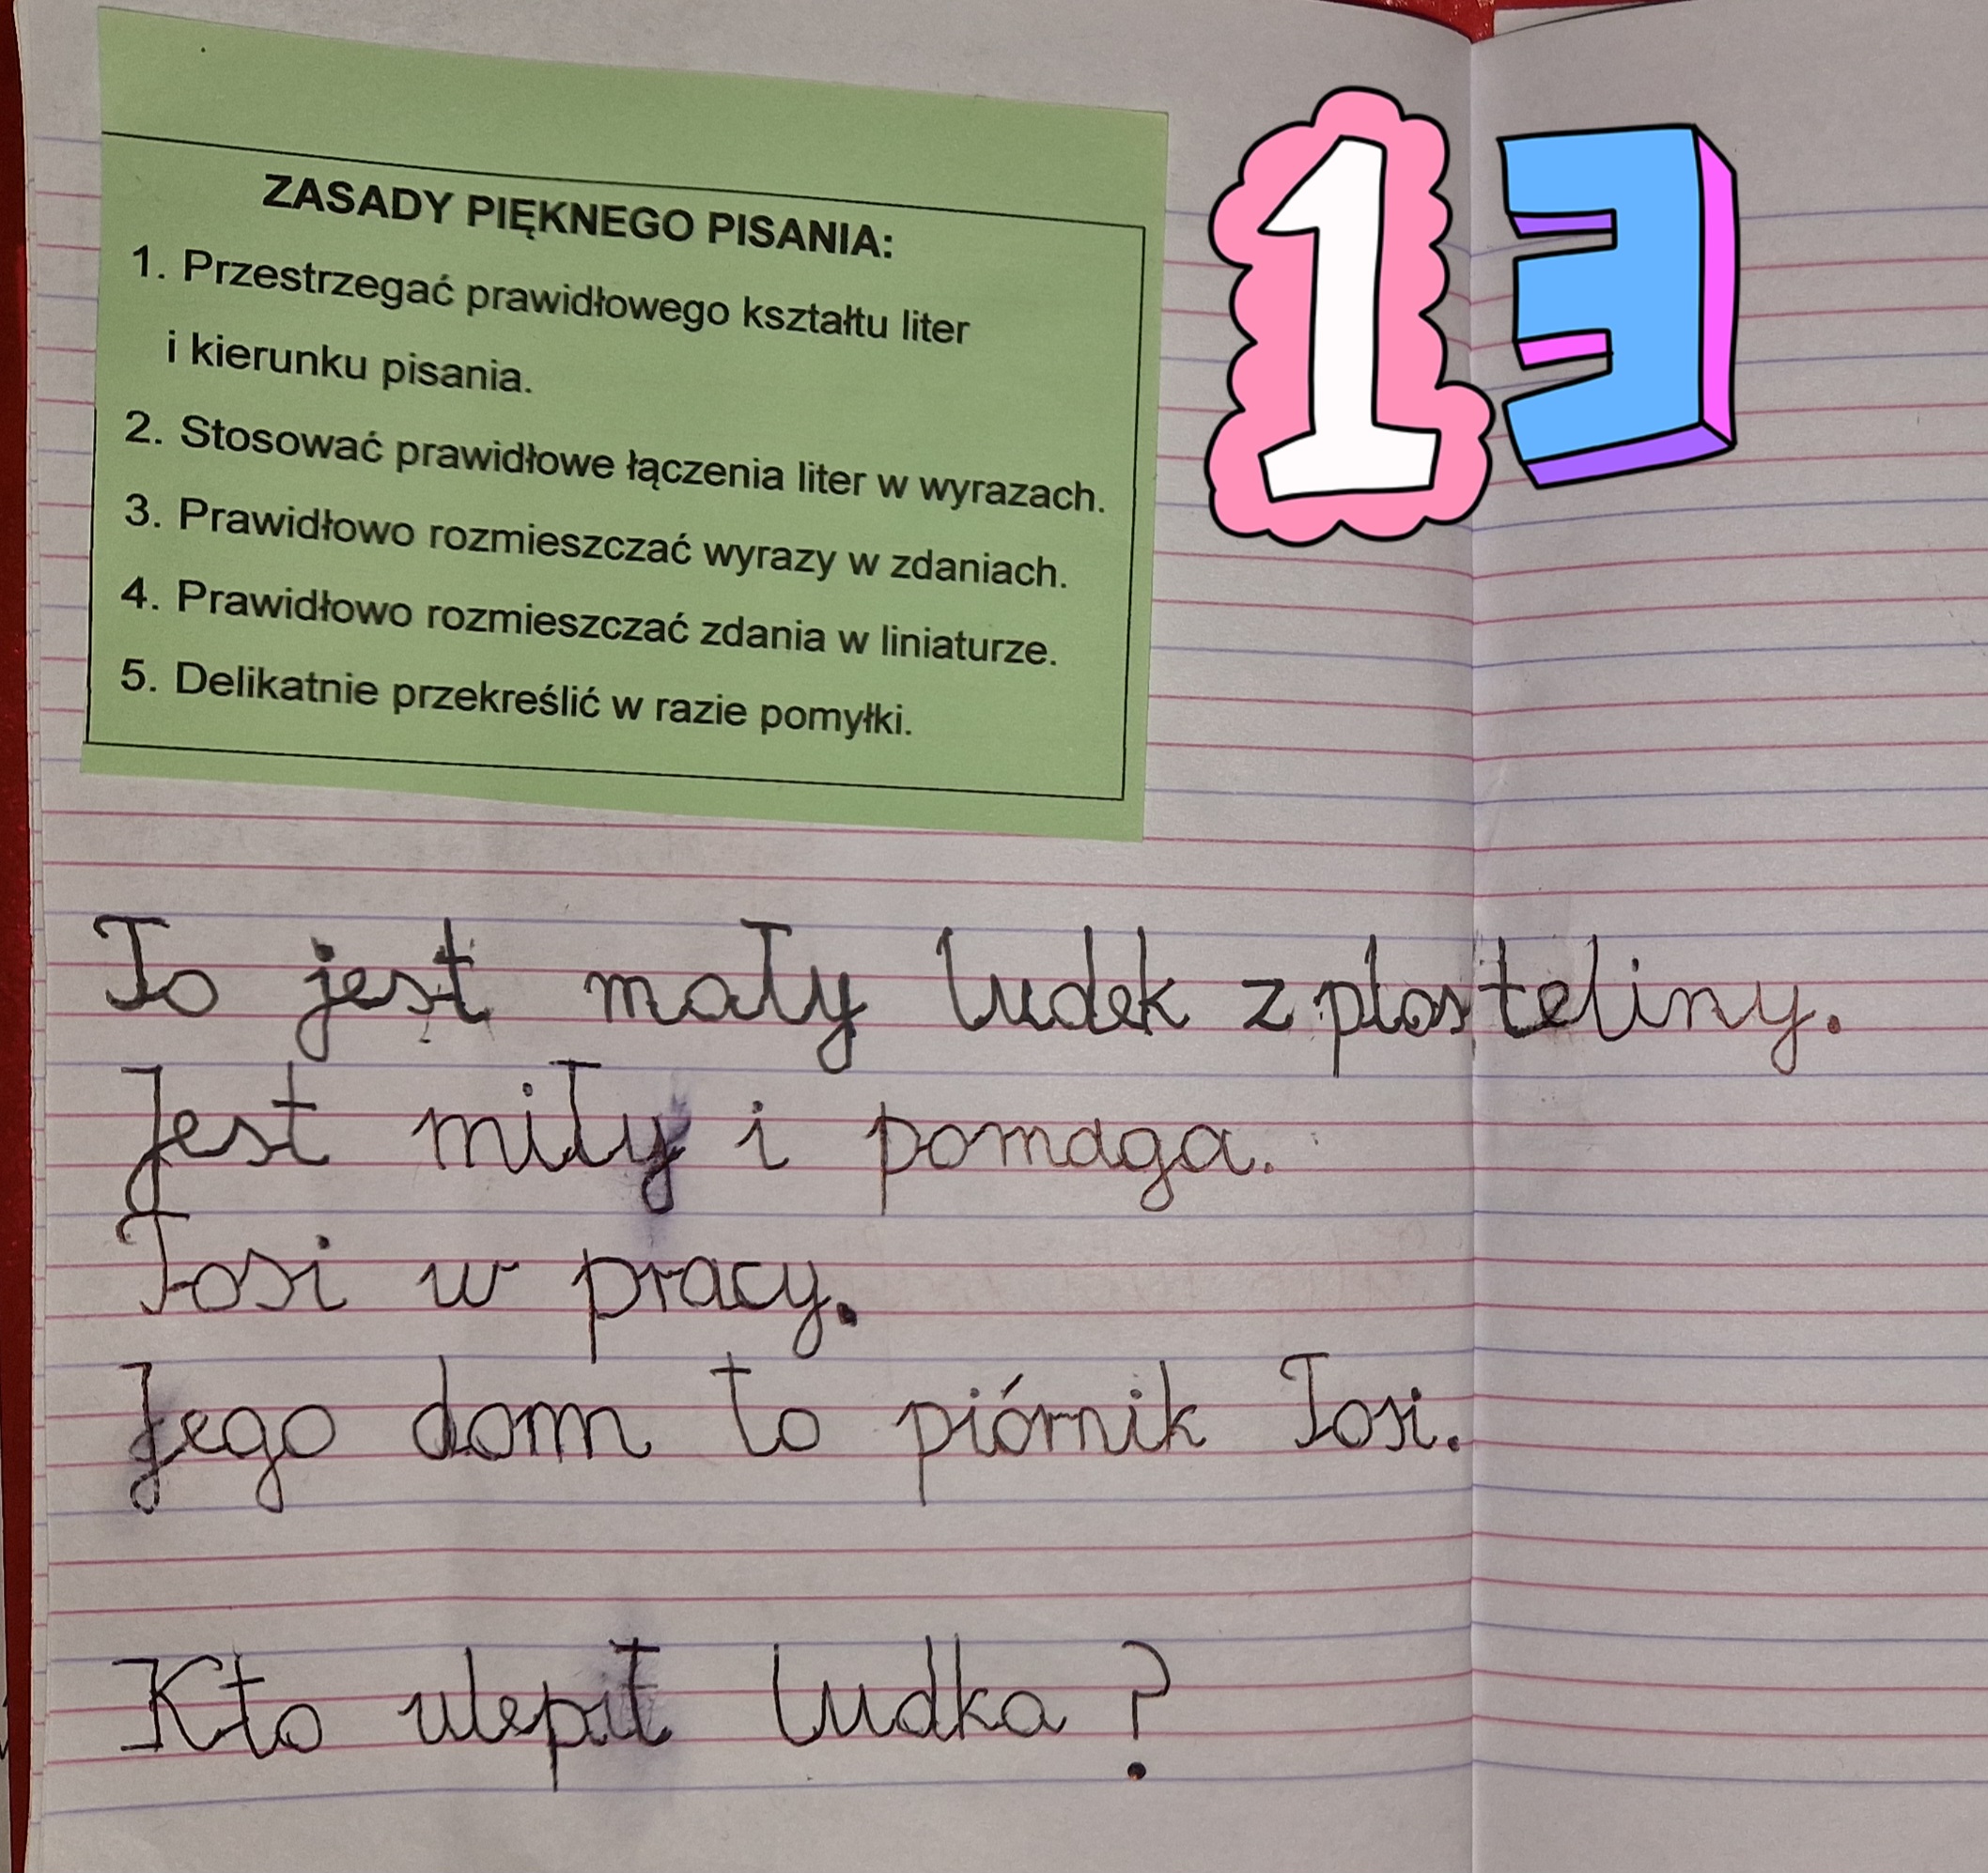 ZASADY PIĘKNEGO PISANIA:
1. Przestrzegać prawidłowego kształtu liter
i kierunku pisania.
2. Stosować prawidłowe łączenia liter w wyrazach.
3. Prawidłowo rozmieszczać wyrazy w zdaniach.
4. Prawidłowo rozmieszczać zdania w liniaturze.
5. Delikatnie przekreślić w razie pomyłki.
13
To jest mały ludek z plosteliny.
Jest miły i pomaga.
Tosi w pracy.
Jego dom to piórnik Tosi.
Kto ulepił ludka?